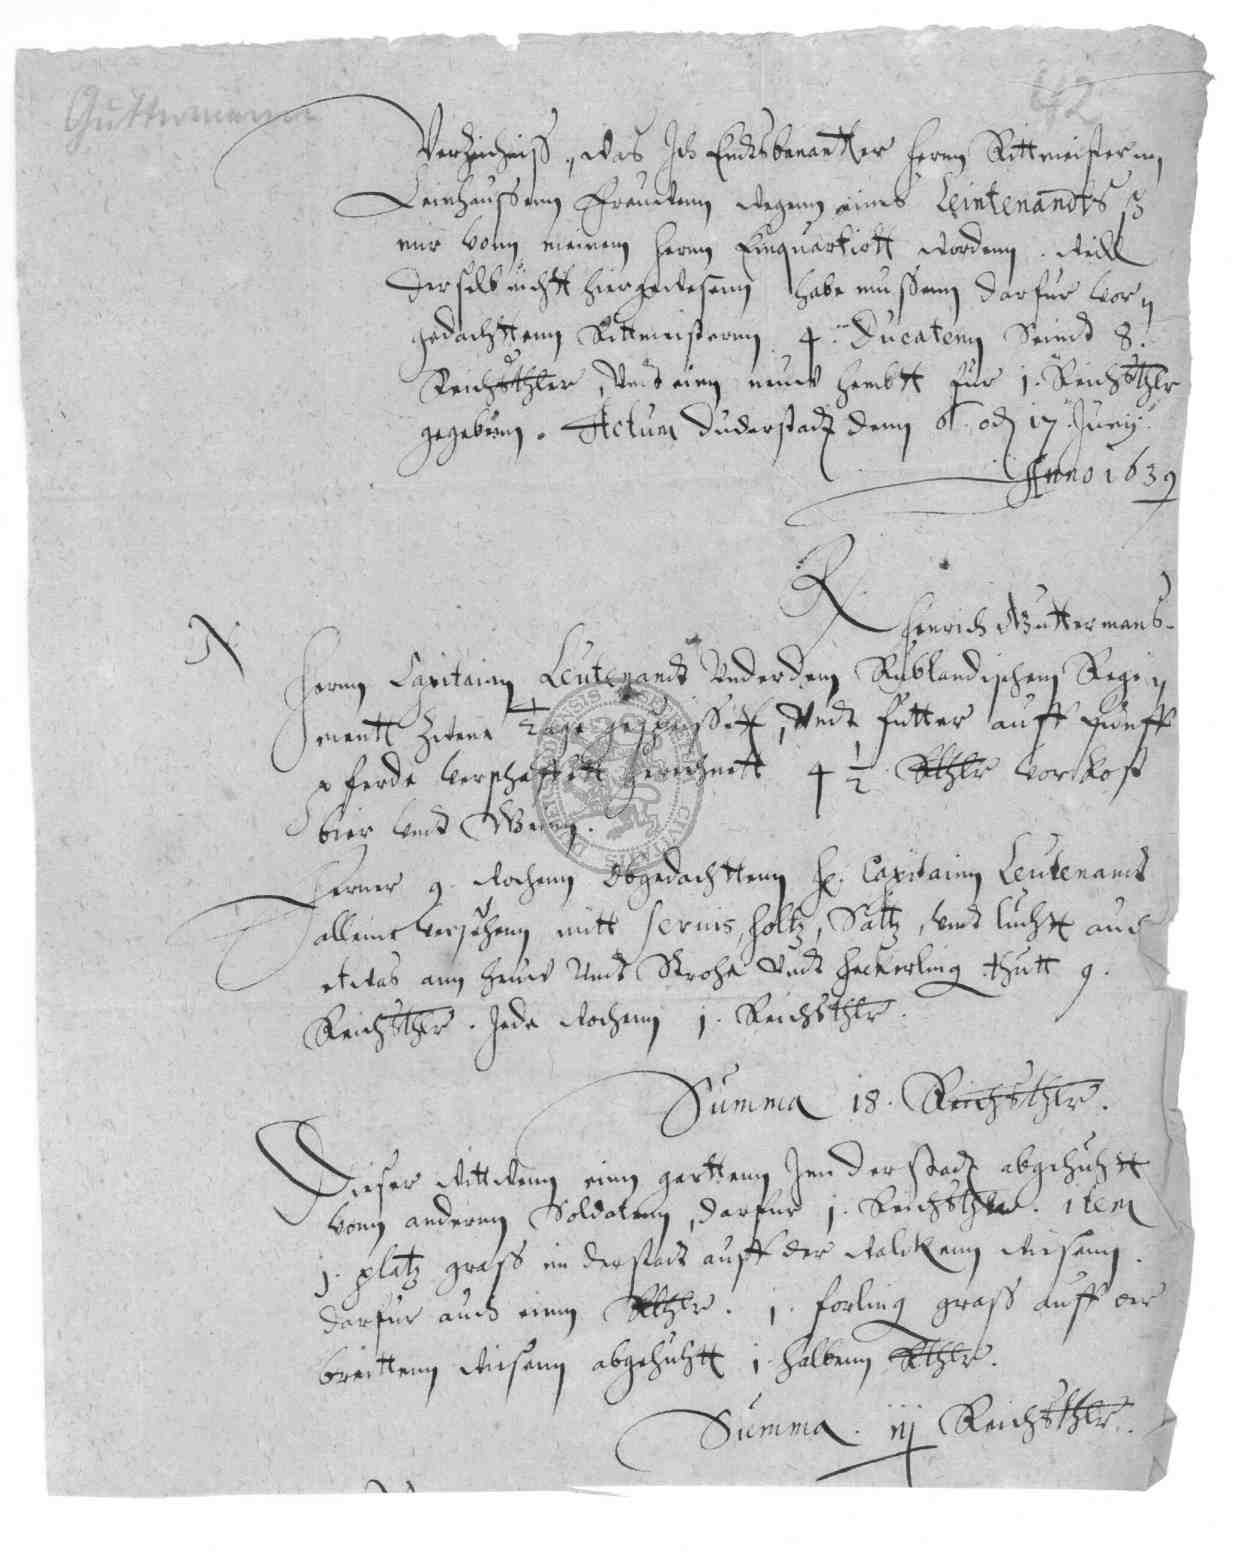 Guttermann
42
Verzeichniss, was Ich Endtsbenantter Herrn Rittmeisternn
Leinhaussenn Frauwenn wegenn eines Leintenandts ß
mir vonn meinem Herrn Einquartirtt wordenn. Weill
derselb nichtt hiergewesenn habe mussenn darfur vor
gedachttenn Rittmeisternn 4. Ducatenn Seindt 8.
Reichsthler, Undt ein neuw hembtt fur 1. Reichsthlr
gegebenn. Actum Duderstadt denn od 17 Junij
Anno 1639
Henrich Guttermans
N
Herrn Capitainn Leutenandt Underdem Ruhlandischenn Regi
mentt Zwene 1/2 tage gespeissett, Undt futter auff funff
pferde verschaffett gerechnett 4 1/2 Rthlr vor kost
bier undt Wein.
Ferner 9. Wochenn Obgedachttenn H. Capitainn Leutenandt
alleine versehenn mitt servis, holtz, Saltz, undt lichtt auch
etwas ann heuw Undt Strohe Undt heckerling thutt 9.
Reichsthlr. Jede Wochenn 1. Reichsthlr.
Summa 18. Reichsthlr.
Dieser Wittwenn einn garttenn Inn der stadt abgehuhtt
vonn anderenn Soldatenn, darfur 1. Reichsthler. item
1. platz grass in der stadt auff der Walckenn Wiesenn.
darfur auch einn Rthlr. 1. forling grass auff der
breittenn Wiesenn abgehuhtt 1 halbenn Rthlr.
Summa iij Reichsthlr.